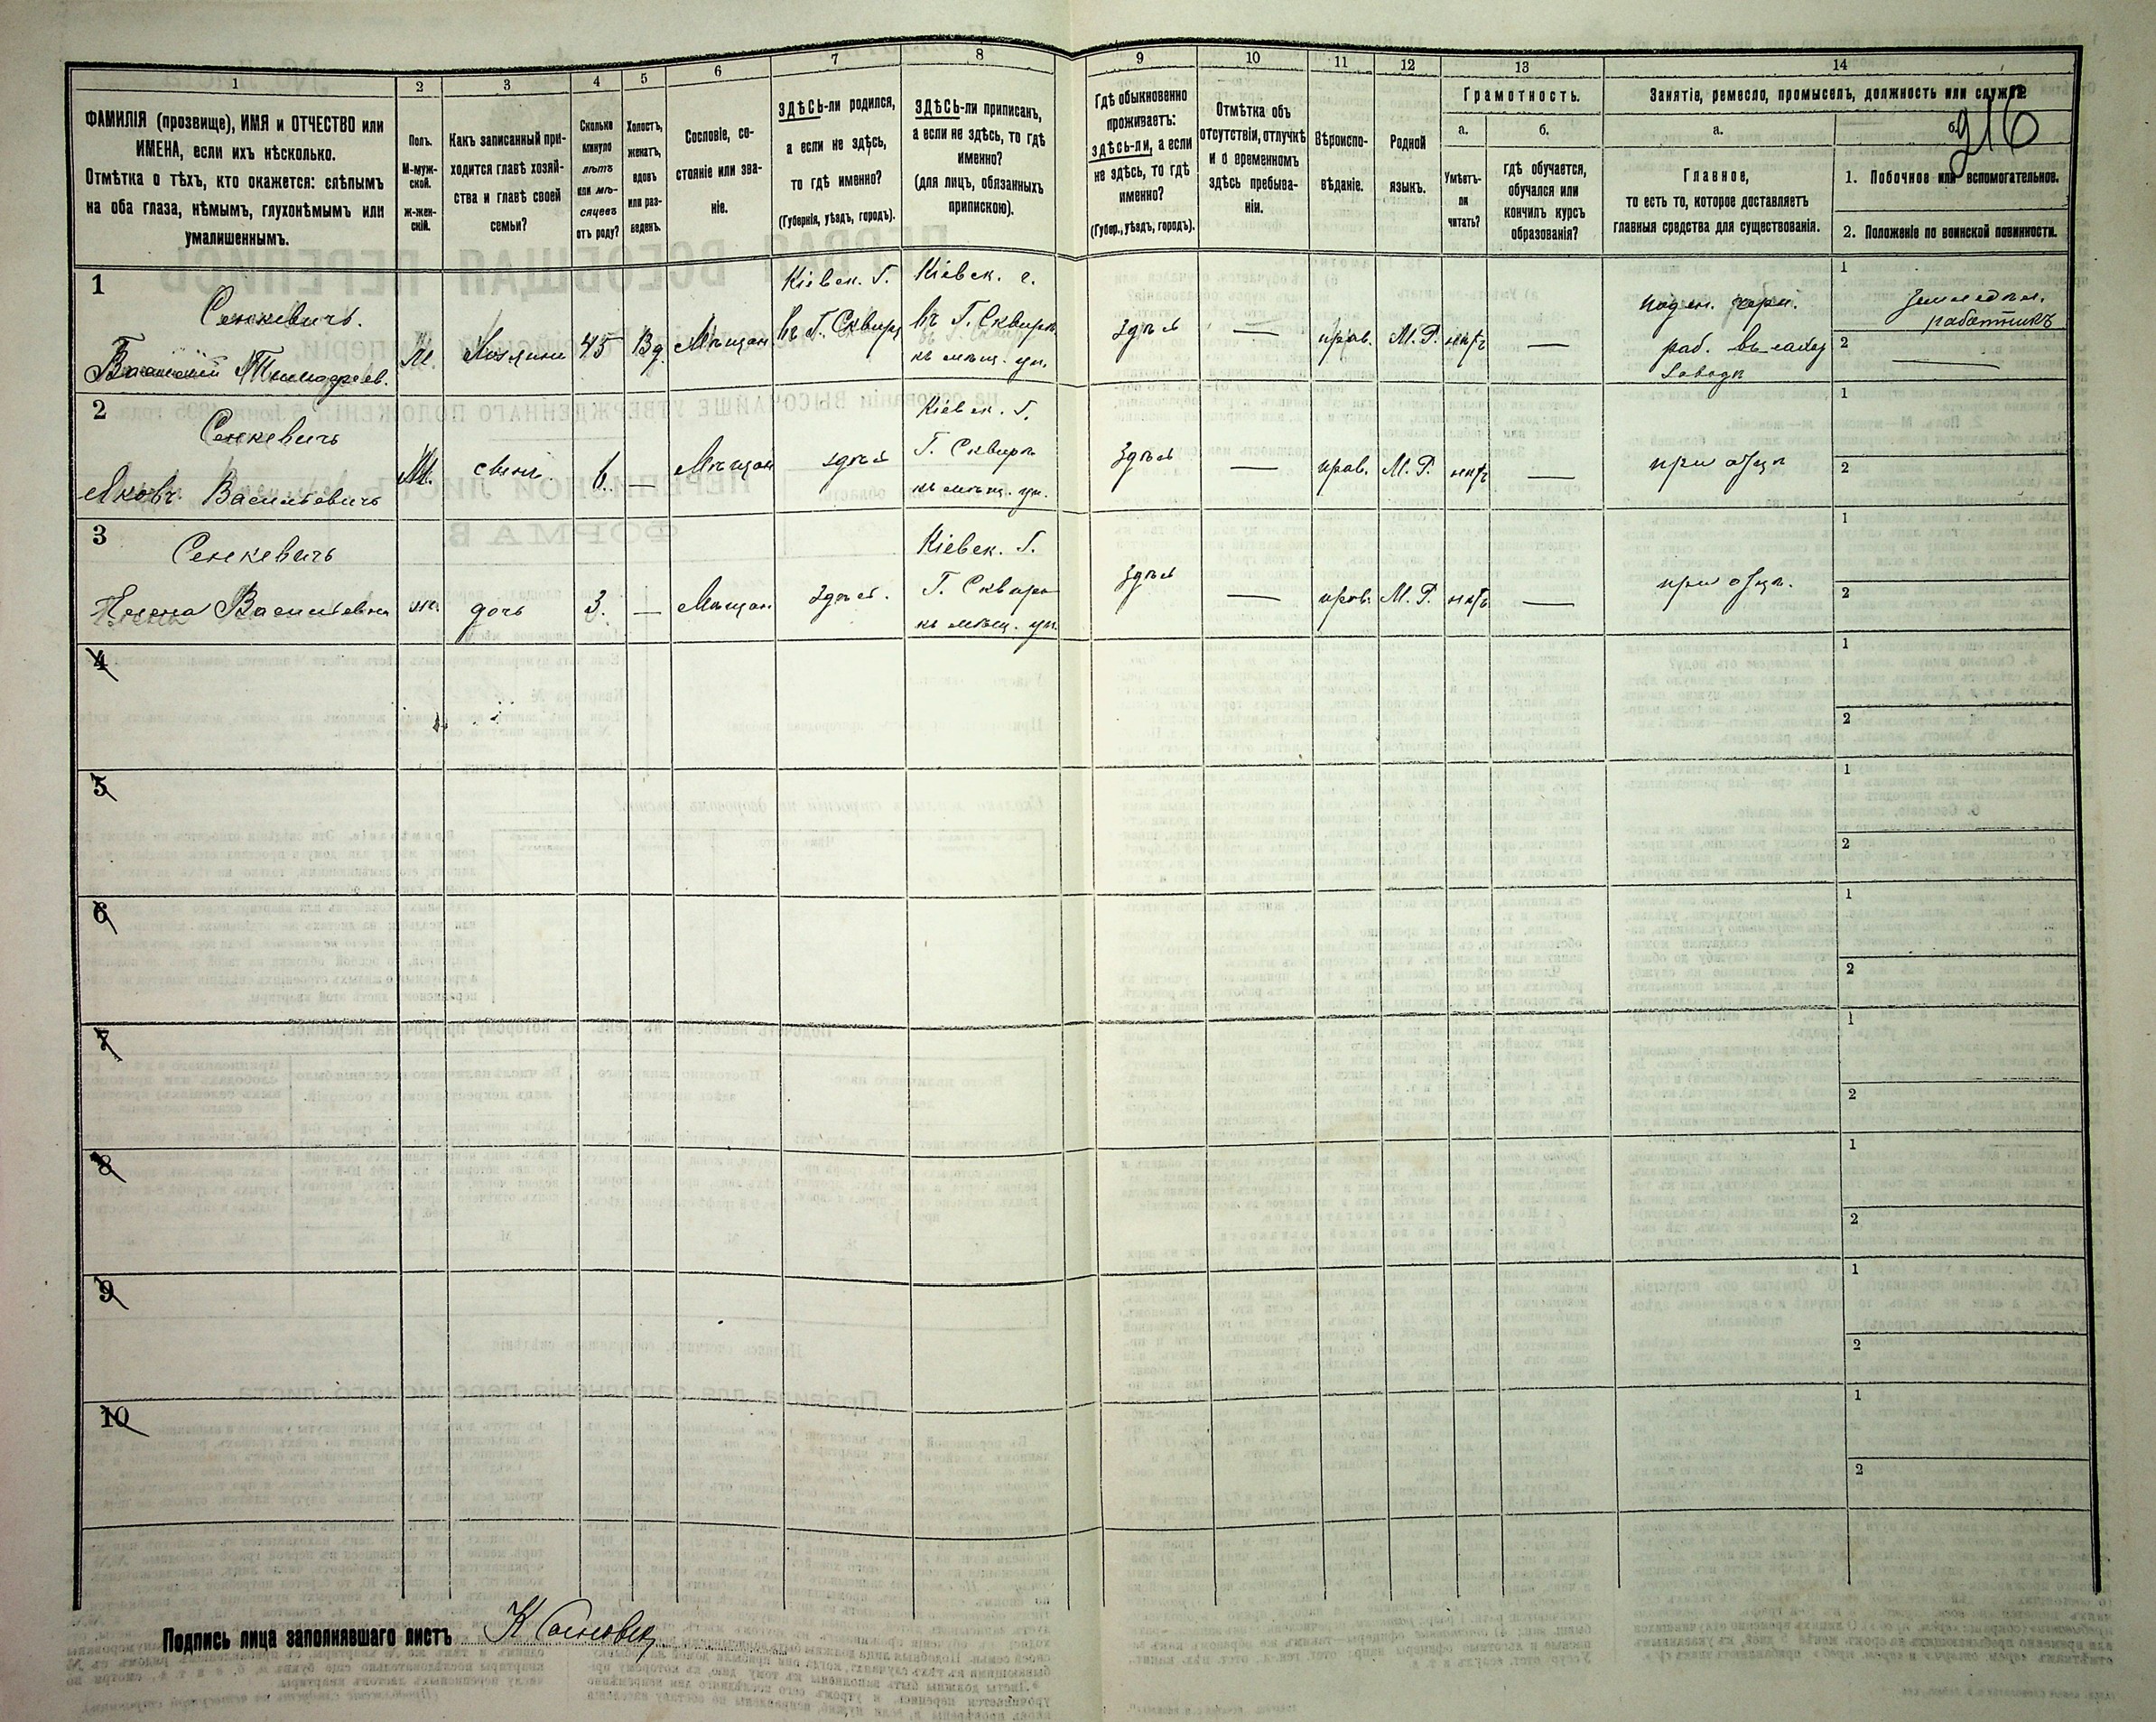 1
2
3
4
5
6
7
8
9
10
11
12
13
14
ФАМИЛІЯ (прозвище), ИМЯ и ОТЧЕСТВО или
ИМЕНА, если ихъ нѣсколько.
Отмѣтка о тѣхъ, кто окажется: слѣпымъ
на оба глаза, нѣмымъ, глухонѣмымъ или
умалишеннымъ.
Полъ.
М-муж-
ской.
ж-жен-
скій.
Какъ записанный при-
ходится главѣ хозяй-
ства и главѣ своей
семьи?
Сколько
минуло
лѣтъ
или мѣ-
сяцевъ
отъ роду?
Холостъ,
женатъ,
вдовъ
или раз-
веденъ.
Сословіе, со-
стояніе или зва-
ніе.
ЗДѢСЬ-ли родился,
а если не здѣсь,
то гдѣ именно?
(Губернія, уѣздъ, городъ).
ЗДѢСЬ-ли приписанъ,
а если не здѣсь, то гдѣ
именно?
(для лицъ, обязанныхъ
припискою).
Гдѣ обыкновенно
проживаетъ:
здѣсь-ли, а если
не здѣсь, то гдѣ
именно?
(Губер., уѣздъ, городъ).
Отмѣтка объ
отсутствіи, отлучкѣ
и о временномъ
здѣсь пребыва-
ніи.
Вѣроиспо-
вѣданіе.
Родной
языкъ.
Грамотность.
а.
Умѣетъ-
ли
читать?
б.
гдѣ обучается,
обучался или
кончилъ курсъ
образованія?
Занятіе, ремесло, промыселъ, должность или служба.
216
а.
Главное,
то есть то, которое доставляетъ
главныя средства для существованія.
б.
1. Побочное или вспомогательное.
2. Положеніе по воинской повинности.
1
Сенкевичъ.
Василій Тимофеев.
М. Хозяинъ 45 Вд. Мѣщан.
Кіевск. Г.
въ Г. Сквирѣ
Кіевск. г.
въ Г. Сквирѣ
къ мѣщ. уп.
здѣсь — прав. М. Р. нѣтъ —
поден. черн.
раб. въ сахар
заводѣ
1 земледѣл.
работникъ
2 —
2
Сенкевичъ
Яковъ Васильевичъ
М. сынъ. 6. — Мѣщан здѣсь
Кіевск. Г.
Г. Сквирѣ
къ мѣщ. уп.
здѣсь — прав. М. Р. нѣтъ —
при отцѣ
1
2
3
Сенкевичъ
Елена Васильевна
ж. дочь 3. — Мѣщан здѣсь.
Кіевск. Г.
Г. Сквирѣ
къ мѣщ. уп.
здѣсь — прав. М. Р. нѣтъ —
при отцѣ.
1
2
4
1
2
5
1
2
6
1
2
7
1
2
8
1
2
9
1
2
10
1
2
Подпись лица заполнявшаго листъ